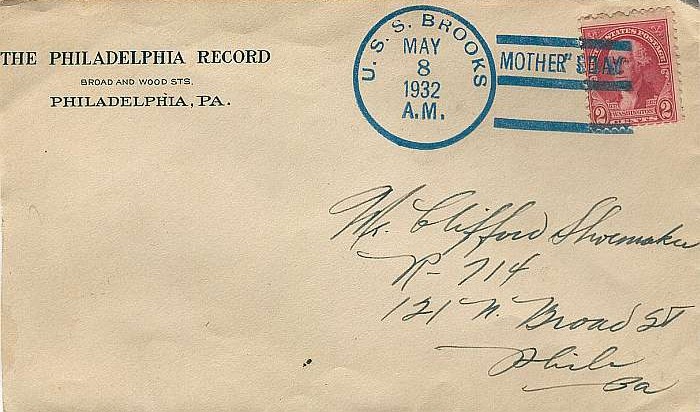 THE PHILADELPHIA RECORD
BROAD AND WOOD STS.
PHILADELPHIA, PA.
U. S. S. BROOKS
MAY
8
1932
A.M.
MOTHER"S DAY
UNITED STATES POSTAGE
2 WASHINGTON 2
CENTS
Mr. Clifford Shoemaker
R-714
121 N. Broad St
Phila
Pa